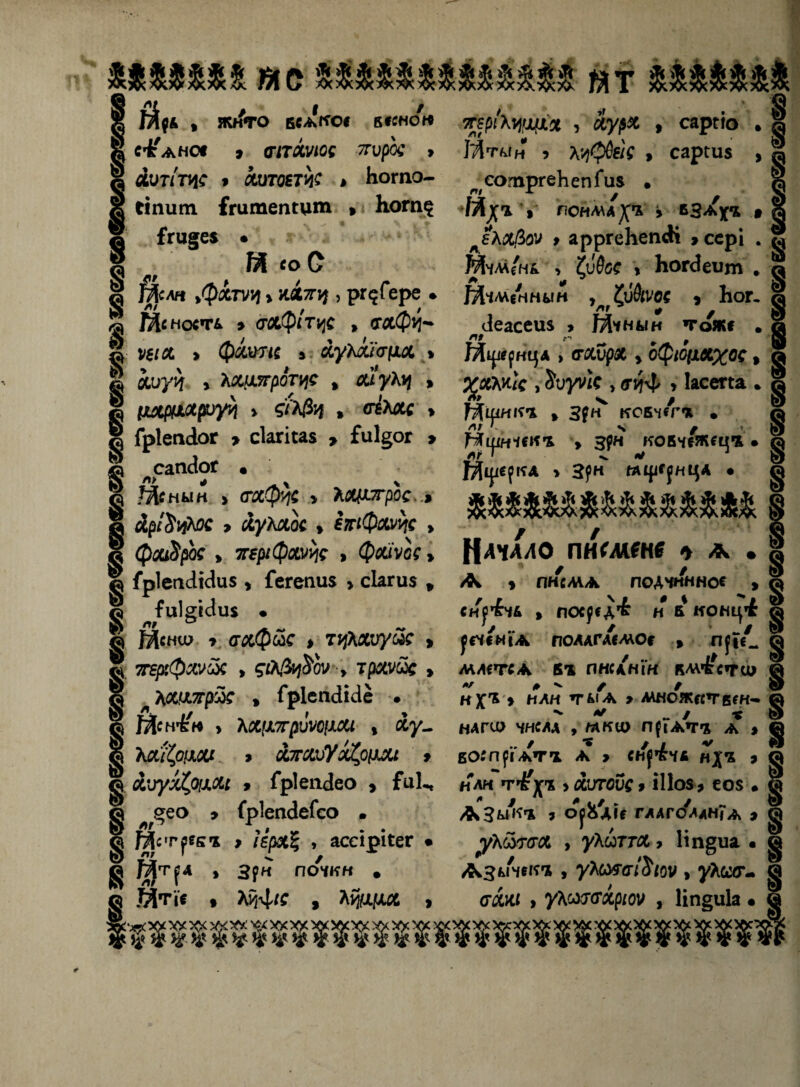 ꙖС ꙖТ
Ꙗ҆рь , жи́то всѧ́кое весно́й
сѣ́ѧное , σιτάνιος πυρὸς ,
ἀυτίτης , ἀυτοετὴς , horno-
tinum frumentum , hornę
fruges .
Ꙗ со С
Ꙗ҆сли , φάτνη , κάπη , pręſepe .
Ꙗ҆сность , σαφίτης , σαφή-
νεια , φάυσις , ἀγλάϊσμα ,
ἀυγὴ , λαμπρότης , αἴγλη ,
μαρμαρυγὴ , ςίλβη , σέλας ,
ſplendor , claritas , fulgor ,
candor .
Ꙗ҆сный , σαφὴς , λαμπρὸς ,
ἀρίδηλος , ἀγλαὸς , ἐπιφανὴς ,
φαιδρὸς , περιφανὴς , φαινὸς ,
ſplendidus , ſerenus , clarus ,
fulgidus .
Ꙗ҆сно , σαφῶς , τηλαυγῶς ,
περιφανῶς , ςιλβηδὸν , τρανῶς ,
λαμπρῶς , ſplendidè .
Ꙗ҆снѣ́ю , λαμπρύνομαι , ἀγ-
λαΐζομαι , ἀπαυγάζομαι ,
ἀυγάζομαι , ſplendeo , ful-
geo , ſplendeſco .
Ꙗ҆стребъ , ἱέραξ , accipiter .
Ꙗ҆тра , зри по́чки .
Ꙗ҆тїе , λῆψις , λῆμμα ,
περίλημμα , ἄγρα , captio .
Ꙗ҆тый , ληφθεὶς , captus ,
comprehenſus .
Ꙗ҆хъ , пойма́хъ , взѧ́хъ ,
ἔλαβον , apprehendi , cepi .
Ꙗ҆чме́нь , ζύθος , hordeum .
Ꙗ҆чме́нный , ζύθινος , hor-
deaceus , Ꙗ҆чный то́же .
Ꙗ҆щерица , σαύρα , ὀφιόμαχος ,
χαλκὶς , ζυγνὶς , σὴψ , lacerta .
Ꙗ҆щикъ , зри ковче́гъ .
Ꙗ҆щичекъ , зри ковче́жецъ .
Ꙗ҆щерка , зри ꙗ҆́щерица .
Нача́ло писмене , Ѧ .
Ѧ , писмѧ подчи́нное ,
си́рѣчь , посредѣ̀ и в̾ концѣ̀
рече́нїѧ полага́емое , прїе-
млетсѧ въ писа́нїи вмѣ́стѡ
ихъ , или ты́ѧ , мно́жествен-
нагѡ числа , ꙗкѡ прїѧ́тъ ѧ ,
воспрїѧ́тъ ѧ , си́рѣчь ихъ ,
или тѣ́хъ , ἀυτοὺς , illos , eos .
Ѧ҆зы́къ , ѻ҆рꙋ́дїе глаго́ланїѧ ,
γλῶσσα , γλῶττα , lingua .
Ѧ҆зы́чекъ , γλωσσίδιον , γλωσ-
σάκι , γλωσσάριον , lingula .